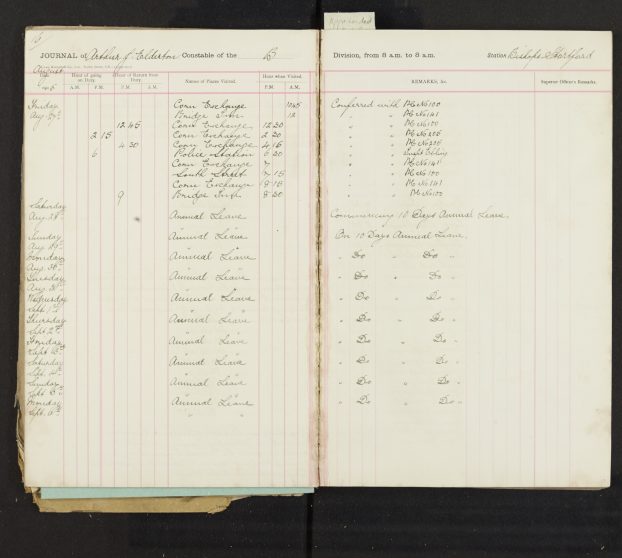 Appended
JOURNAL of Arthur J. Elderton Constable of the B Division, from 8 a.m. to 8 a.m. STATION Bishops Stortford
August
Hour of going on Duty. Hour of Return from Duty. Names of Places Visited. Hour when Visited. REMARKS, &c. Superior Officer's Remarks.
A.M. P.M. P.M. A.M. P.M. A.M.
Friday Corn Exchange 10 45 Conferred with PC No 100
Aug 27th Bridge Inn 12 " " PC No 141
12 45 Corn Exchange 12 30 " " PC No 100
2 15 Corn Exchange 2 20 " " PC No 206
4 30 Corn Exchange 4 15 " " PC No 206
6 Police Station 6 30
Corn Exchange 7 " " PC No 141
South Street 7 15 " " PC No 100
Corn Exchange 8 15 " " PC No 141
9 Bridge Inn 8 30 " " PC No 100
Saturday
Aug. 28th Annual Leave Commencing 10 Days Annual Leave.
Sunday
Aug. 29th Annual Leave On 10 Days Annual Leave.
Monday
Aug. 30th Annual Leave " Do " Do "
Tuesday
Aug. 31st Annual Leave " Do " Do "
Wednesday
Sept. 1st Annual Leave " Do " Do "
Thursday
Sept. 2nd Annual Leave " Do " Do "
Friday
Sept. 3rd Annual Leave " Do " Do "
Saturday
Sept. 4th Annual Leave " Do " Do "
Sunday
Sept. 5th Annual Leave " Do " Do "
Monday
Sept. 6th Annual Leave " Do " Do "
" "